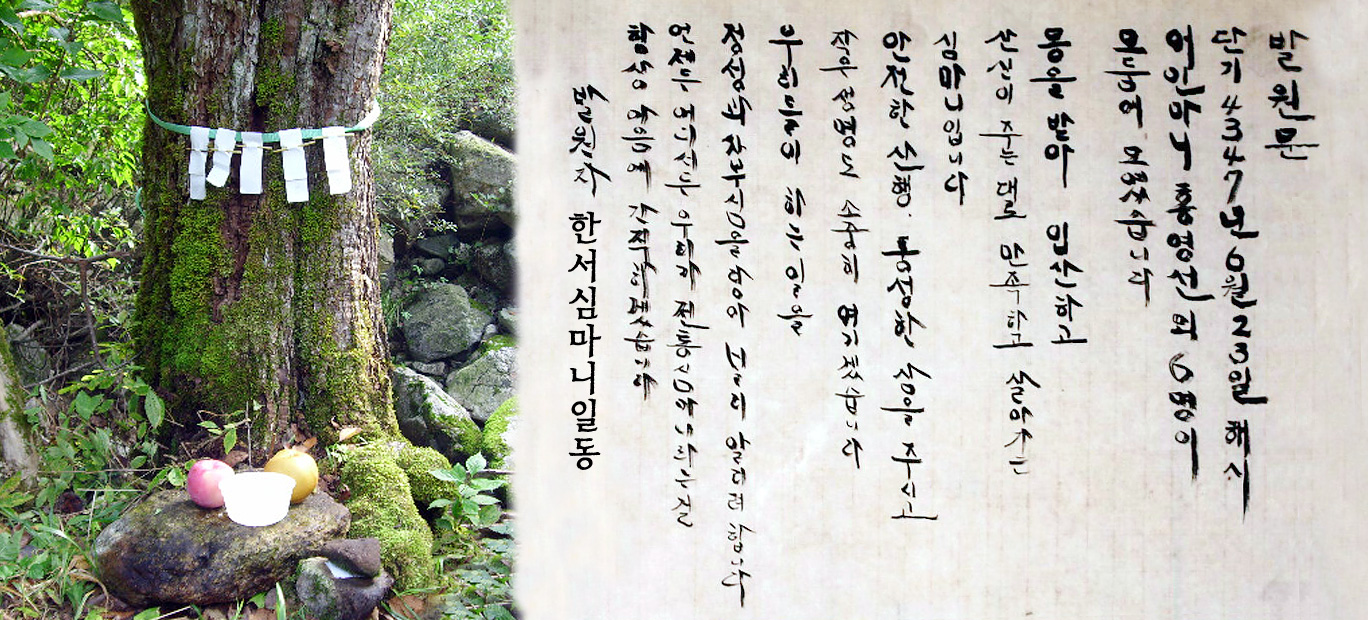 발원문
단기 4347년 6월 23일 해시
어인마니 홍영선 외 6명이
모둠에 모였습니다
몽을 받아 입산하고
산신이 주는대로 만족하고 살아가는
심마니입니다
안전한 산행. 풍성한 삼을 주시고
작은 생명도 소중히 여기겠습니다
우리들이 일을
정성과 자부심을 담아 널리 알리려 합니다
언제든 어디서든 우리가 전통심마니라는걸
항상 마음에 간직하겠습니다
발원자 한서심마니일동